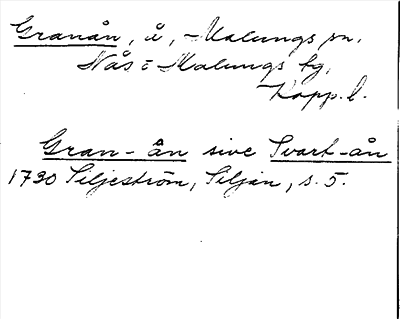 Granån, å, - Malungs sn,
Nås = Malungs hg,
Kopp. l.
Gran-ån sive Svart-ån
1730 Siljeström, Siljan, s. 5.